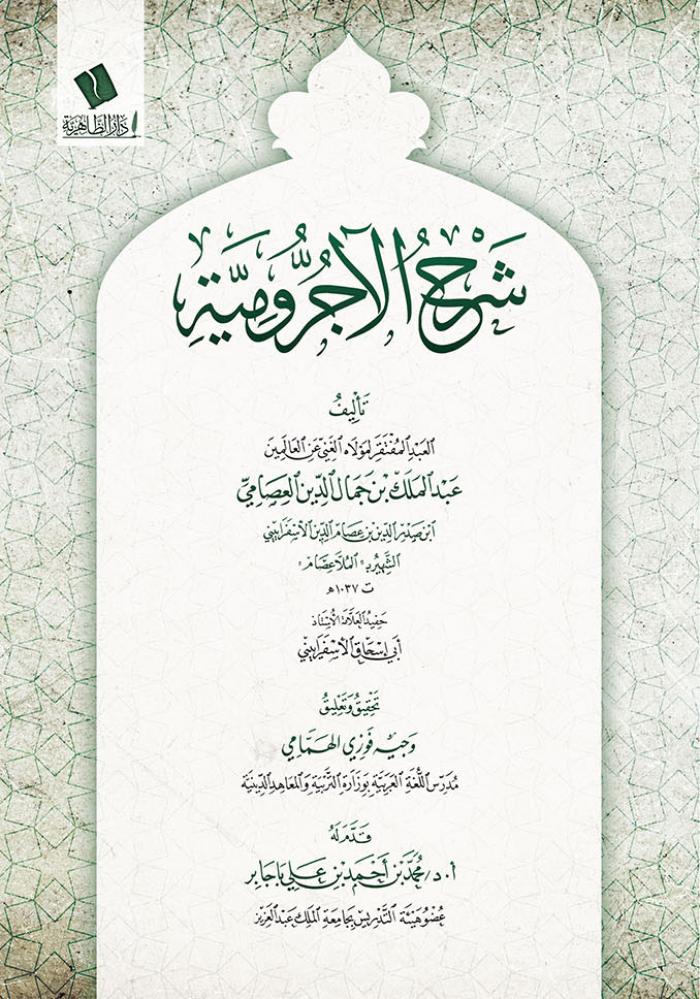 دَارُ الظَّاهِرِيَّة
شَرْحُ الْآجُرُّومِيَّةِ
تَأْلِيفُ
العَبْدِ المُفْتَقِرِ لِمَوْلَاهُ الغَنِيِّ عَنِ العَالَمِينَ
عَبْدِ المَلِكِ بْنِ جَمَالِ الدِّينِ العِصَامِيِّ
ابْنِ صَدْرِ الدِّينِ بْنِ عِصَامِ الدِّينِ الأَسْفَرَايِينِيِّ
الشَّهِيرِ بِـ «المُلَّا عِصَام»
ت ١٠٣٧ هـ
حَفِيدِ العَلَّامَةِ الأُسْتَاذِ
أَبِي إِسْحَاقَ الأَسْفَرَايِينِيِّ
تَحْقِيقُ وَتَعْلِيقُ
وَجِيه فَوْزِي الهَمَّامِي
مُدَرِّسِ اللُّغَةِ العَرَبِيَّةِ بِوَزَارَةِ التَّرْبِيَةِ وَالمَعَاهِدِ الدِّينِيَّةِ
قَدَّمَ لَهُ
أ.د/ مُحَمَّدُ بْنُ أَحْمَدَ بْنِ عَلِي بَاجَابِر
عُضْوُ هَيْئَةِ التَّدْرِيسِ بِجَامِعَةِ المَلِكِ عَبْدِ العَزِيزِ